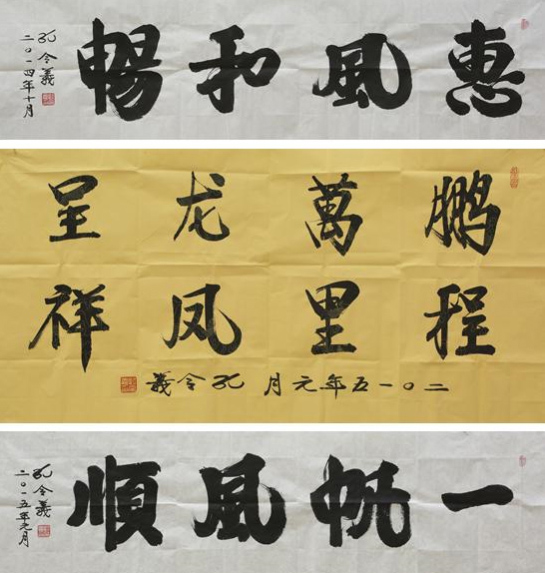 惠風和暢
孔令義
二〇一四年十月
鹏程
萬里
龙凤
呈祥
二〇一五年元月 孔令義
一帆風順
孔令義
二〇一五年元月